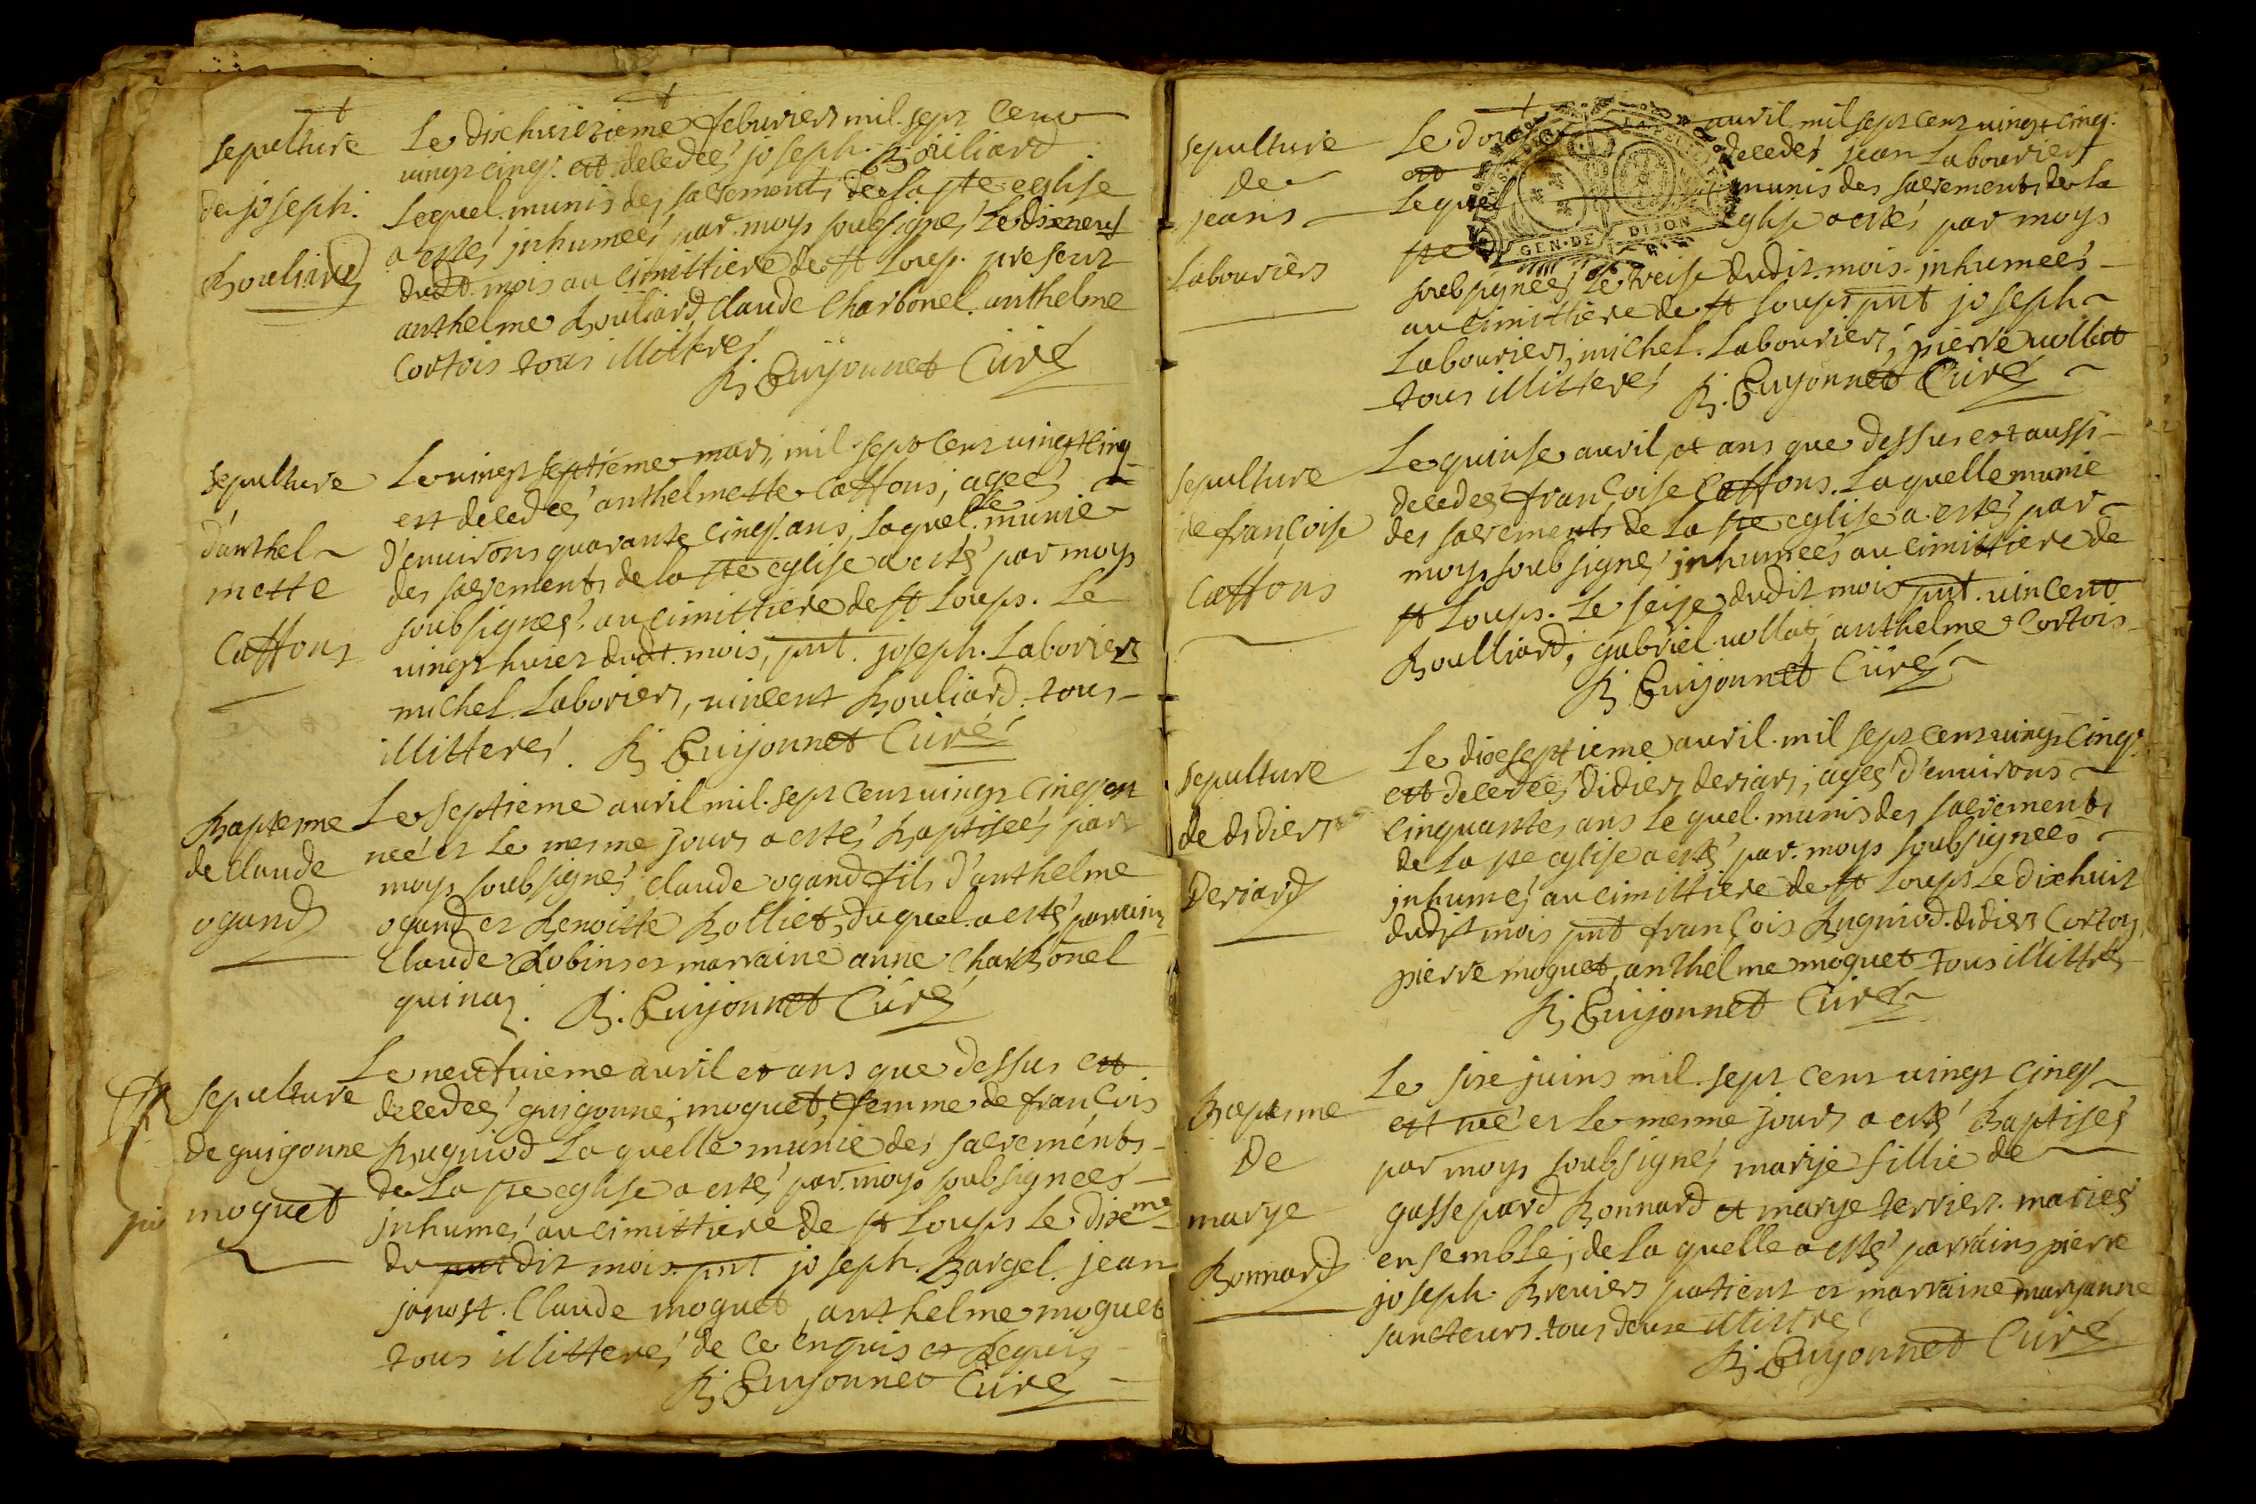 sepulture
de joseph.
Bouliard
Le dixhuictieme febvriers mil sept cent
vingt cinq. est decedeé joseph. Bouliard
Lequel munis des sacrements de la ste eglise
a esté jnhumeé par moys soubsigné Le dixneuf
dudt. mois au cimittiere de st Loup. present
anthelme Bouliard, Claude Charbonel. anthelme
Cortois tous illitteré.
Guijonnet Curé
sepulture
d'anthel~
mette
Caffons
Le vingt septieme mars, mil sept cent vingt cinq
est decedeé anthelmette Caffons, ageé
d'environs quarante cinq ans, laquelle munie
des sacrements de la ste eglise a esté par moys
soubsigneé. au cimittiere de st Loups. Le
vingt huict dudt. mois, pnt. joseph. Laboriers
michel. Laboriers, vincent Bouliard. tous
illitteré. Guijonnet Curé
Bapteme
de Claude
ogand
Le septieme avril mil. sept cent vingt cinq est
neé et le mesme jours a esté Baptiseé par
moys soubsigné, claude ogand fils d'anthelme
ogand et Benoitte Rolliet, duquel a esté parrain
Claude Robins et marraine anne Charbonel
quinay. Guijonnet Curé
sepulture
de guigonne
moguet
Le neufvieme avril et ans que dessus est
decedeé guigonne, moguet, femme de françois
Bugniod La quelle munie des sacrements
de La ste eglise a esté par. moys soubsigneés
jnhumé au cimittiere de st Loups Le dixme
du pnt dit mois. pnt joseph. Bargel. jean
janost. Claude moguet, anthelme moguet
tous illitteré de ce enquis et Requis
Guijonnet Curé
sepulture
de
jeans
Labouriers
Le douse avril mil sept cent vingt cinq.
est decedé jean Labouriers
Lequel munis des sacrements de la
ste eglise a esté par moys
soubsigneé, Le treise dudit mois. jnhumeés
au cimittiere de st Loups pnt joseph
Labouriers, michel. Labouriers, pierre vollat
tous illitteré Guijonnet Curé
GEN · DE DIJON
sepulture
de françoise
Caffons
Le quinse avril, et ans que dessus est aussi
decedeé françoise Caffons. Laquelle munie
des sacrements de La ste eglise a esté par
moys soubsigné jnhumeé au cimittiere de
st Loups. Le seise dudit mois pnt. vincent
Boulliard, gabriel. vollat, anthelme Cortois
Guijonnet Curé
sepulture
de didiers
Deriard
Le dixseptieme avril. mil sept cent vingt cinq.
est decedeé didiers deriars, ageé d'environs
cinquantes ans Le quel. munis des sacrements
de La ste eglise a esté par. moys soubsigneés
jnhumé au cimittiere de st Loups Le dixhuit
dudit mois pnt françois Bugniod. didiers Cortoys,
pierre moguet, anthelme moguet tous illitteré
Guijonnet Curé
Bapteme
De
marye
Bonnard
Le sixe juins mil. sept cent vingt cinq
est neé et Le mesme jours a esté Baptiseé
par moys soubsigné, marije fillie de
gassepard Bonnard et marye terrier. mariés
ensemble, de La quelle a esté parrains pierre
joseph. Breviers patient et marraine maryanne
tous deuxe illitteré
Guijonnet Curé